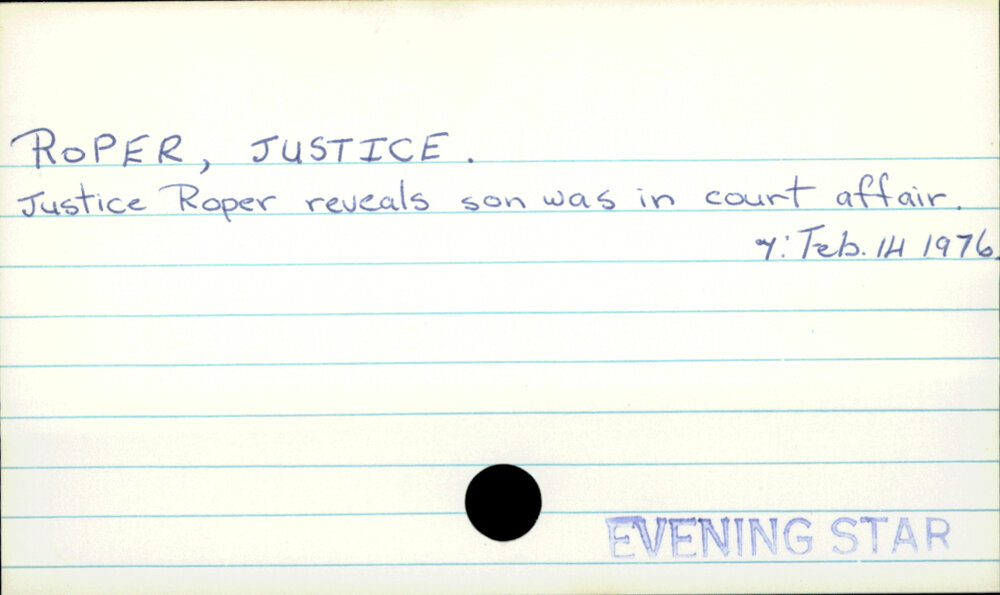 ROPER, JUSTICE.
Justice Roper reveals son was in court affair.
y: Feb. 14 1976.
EVENING STAR